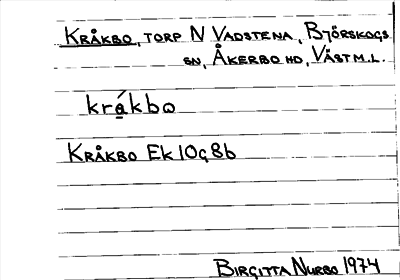 KRÅKBO, TORP N VADSTENA, BJÖRSKOGS
SN, ÅKERBO HD, VÄSTM.L.
krá̱kbo
KRÅKBO Ek 10g8b
BIRGITTA NURBO 1974